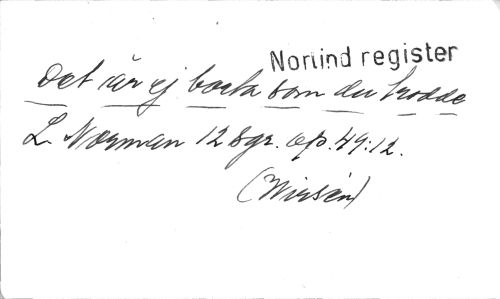 Norlind register
Det är ej borta som du trodde
L. Norman 12 Sgr. op. 49:12.
(Wirsén)